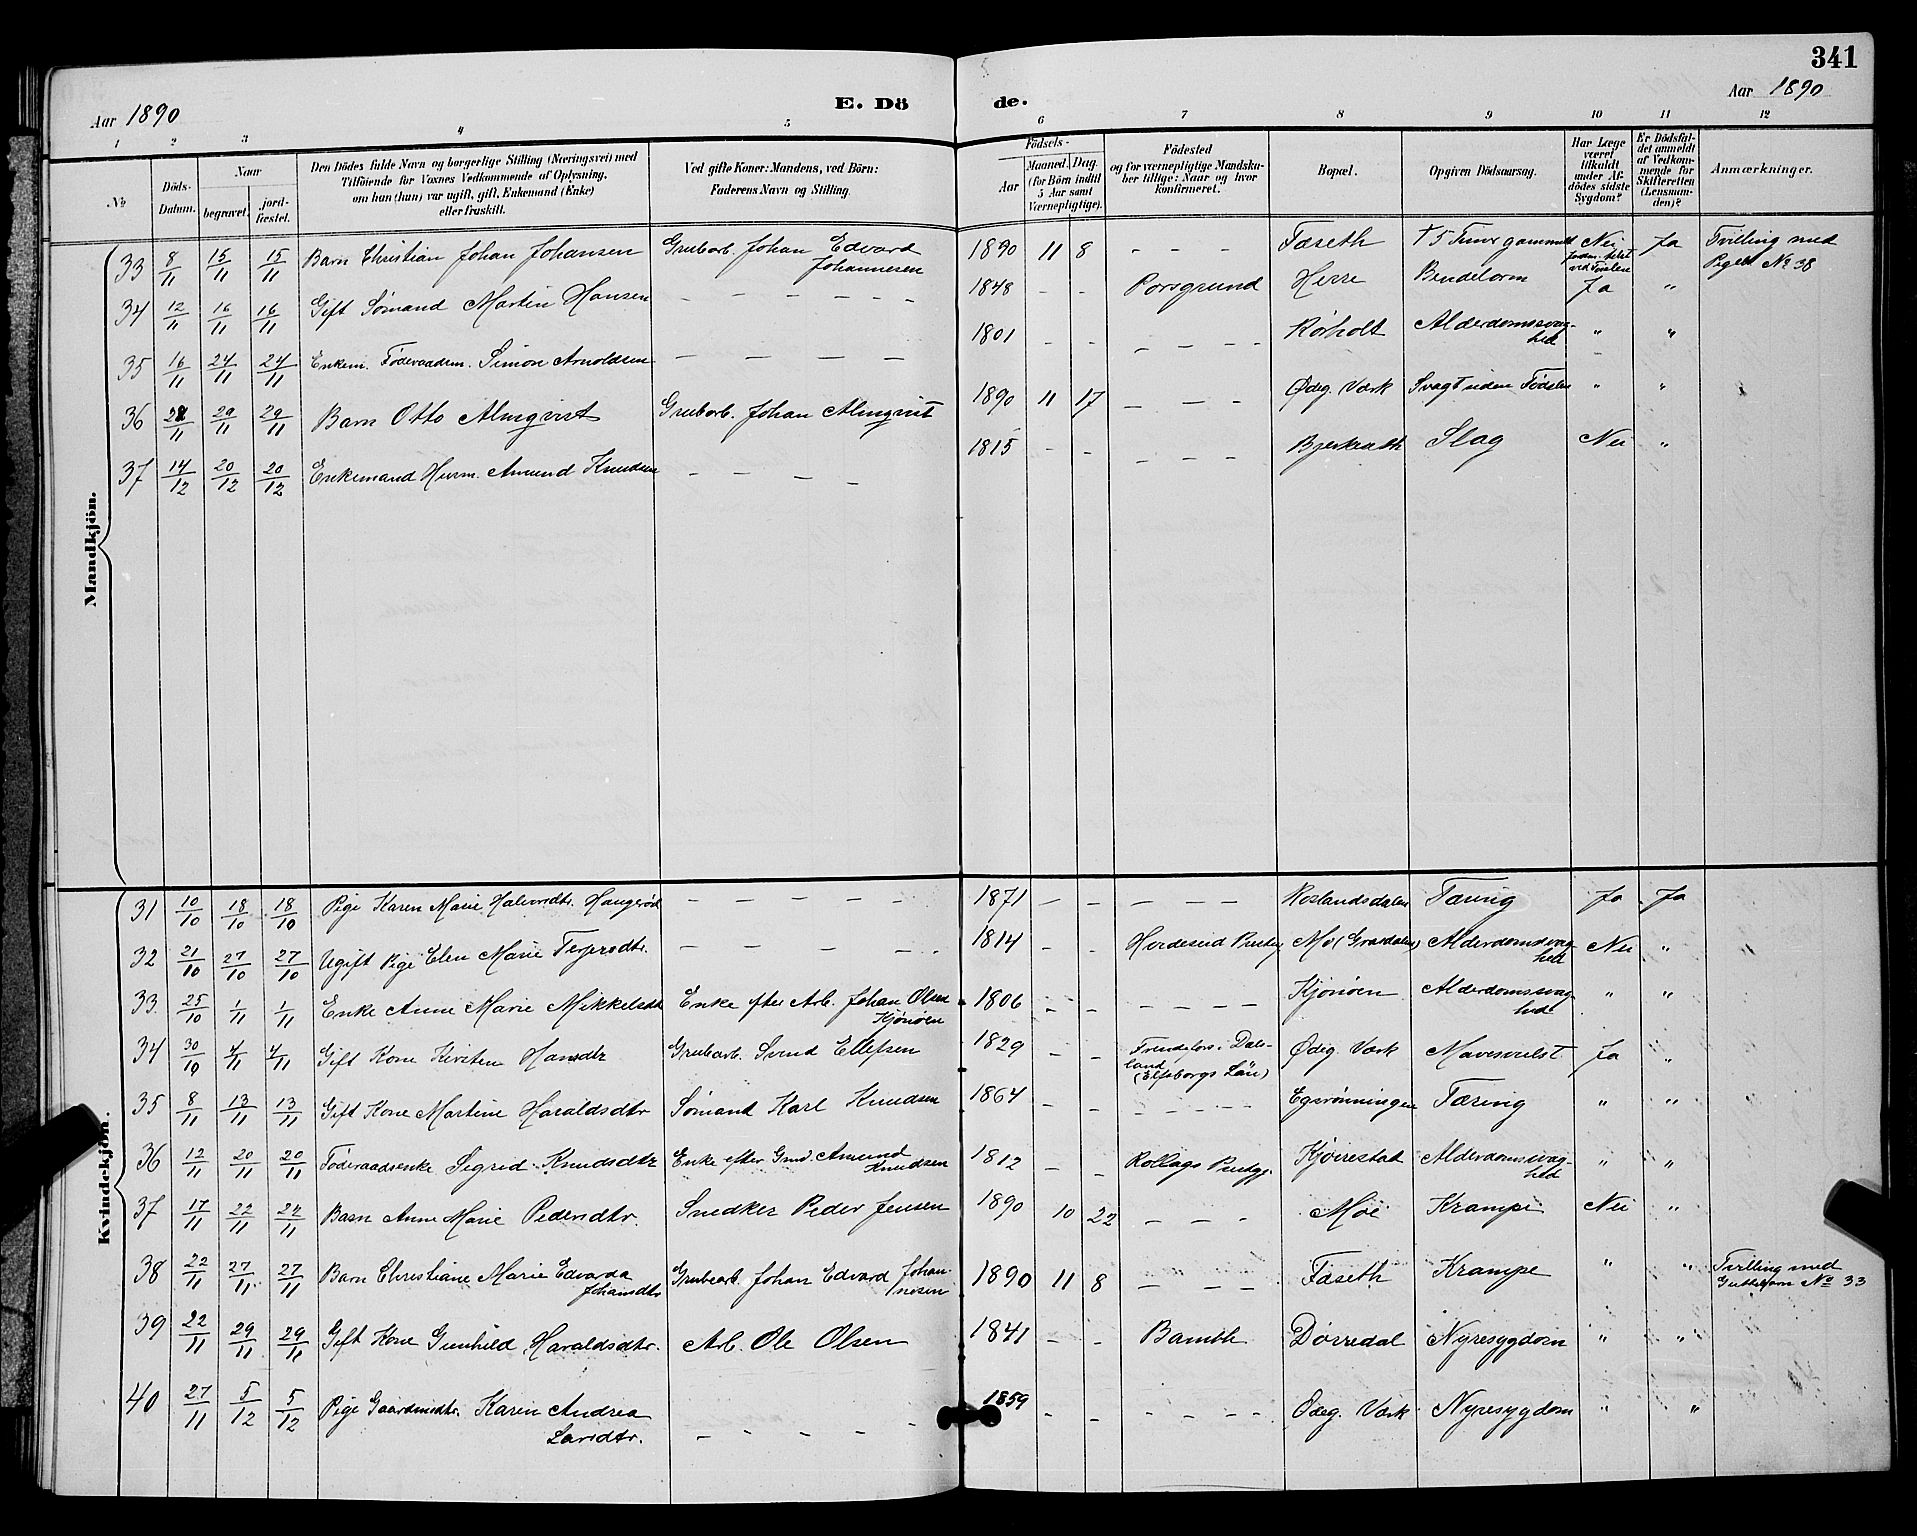 341
Aar 1890
E. Dö
de.
Aar 1890
1 2 3 4 5 6 7 8 9 10 11 12
No
Döds-
Datum.
Naar
begravet.
jord-
fæstet.
Den Dödes fulde Navn og borgerlige Stilling (Næringsvei) med
Tilföiende for Voxnes Vedkommende af Oplysning,
om han (hun) var ugift, gift, Enkemand (Enke)
eller fraskilt.
Ved gifte Koner: Mandens, ved Börn:
Faderens Navn og Stilling.
Födsels-
Aar
Maaned. Dag.
(for Börn indtil
5 Aar samt
Værnepligtige).
Födested
og for værnepligtige Mandska-
ber tillige: Naar og hvor
konfirmeret.
Bopæl.
Opgiven Dödsaarsag.
Har Læge
været
tilkaldt
under Af-
dödes sidste
Sygdom?
Er Dödsfal-
det anmeldt
af Vedkom-
mende for
Skifteretten
(Lensman-
den)?
Anmærkninger.
Mandkjön.
33 8/11 15/11 15/11 Barn Christian Johan Johansen Grubarb. Johan Edvard Johannesen 1890 11 8 – – – Fæseth † 5 Timer gammel Nei ved Fødslen Ja Tvilling med Pigeb. No 38
34 12/11 16/11 16/11 Gift Sømand Martin Hansen – – – – – 1848 – – Porsgrund Herre Bendelorm Ja "
35 16/11 24/11 24/11 Enkem. Føderaadsm. Simon Arnoldsen – – – – 1801 – – – – – – Rørholt Alderdomssvag-hed " "
36 /11 29/11 29/11 Barn Otto Almqvist Grubarb. Johan Almqvist 1890 11 17 – – – Ødeg. Værk Svagt siden Fødslen " "
37 14/12 20/12 20/12 Enkemand Husm. Amund Knudsen – – – – 1815 – – – – – – Slag Nei "
Kvindekjön.
31 10/10 18/10 18/10 Pige Karen Marie Halvordtr. Haugerød – – – – – 1871 – – – – – – Roslandsdalen Tæring Ja Ja
32 21/10 27/10 27/10 Ugift Pige Elen Marie Terjersdtr. – – – – 1814 – – Hvideseid Prstgj. Mo (Grasdalen) Alderdomssvag-hed Nei "
33. 25/10 1/11 1/11 Enke Anne Marie Mikkelsdtr Enke efter Arb. Johan Olsen Kjønøen 1806 – – – – – – Kjønøen Alderdomssvag-hed " "
34 30/10 4/11 4/11 Gift Kone Kirsten Hansdtr Grubarb. Svend Ellefsen 1829 – – i Dals-land (Elfsborgs Län) Ødeg. Værk Mavesvulst Ja "
35 8/11 13/11 13/11 Gift Kone Martine Haraldsdtr Sømand Karl Knudsen 1864 – – – – – – Egsrønningen Tæring " "
36 12/11 20/11 20/11 Føderaadsenke Sigrid Knudsdtr Enke efter Gmd. Amund Knudsen 1812 – – Rollags Prstgj. Kjørrestad Alderdomssvag-hed " "
37 17/11 22/11 22/11 Barn Anne Marie Pedersdtr. Snedker Peder Jensen 1890 10 22 – – – Moe Krampe Nei "
38 22/11 27/11 27/11 Barn Christiane Marie Edvarda Johansdtr Grubearb. Johan Edvard Johannesen 1890 11 8 – – – Fæseth Krampe " " Tvilling med Guttebarn No 33
39 22/11 29/11 29/11 Gift Kone Gunhild Haraldsdtr. Arb. Ole Olsen 1841 – – Bamble Dørredal Nyresygdom " "
40 27/11 5/12 5/12 Pige Gaardmdtr. Karen Andrea Larsdtr. – – – – – 1859 – – – – – – Ødeg. Værk Nyresygdom " "